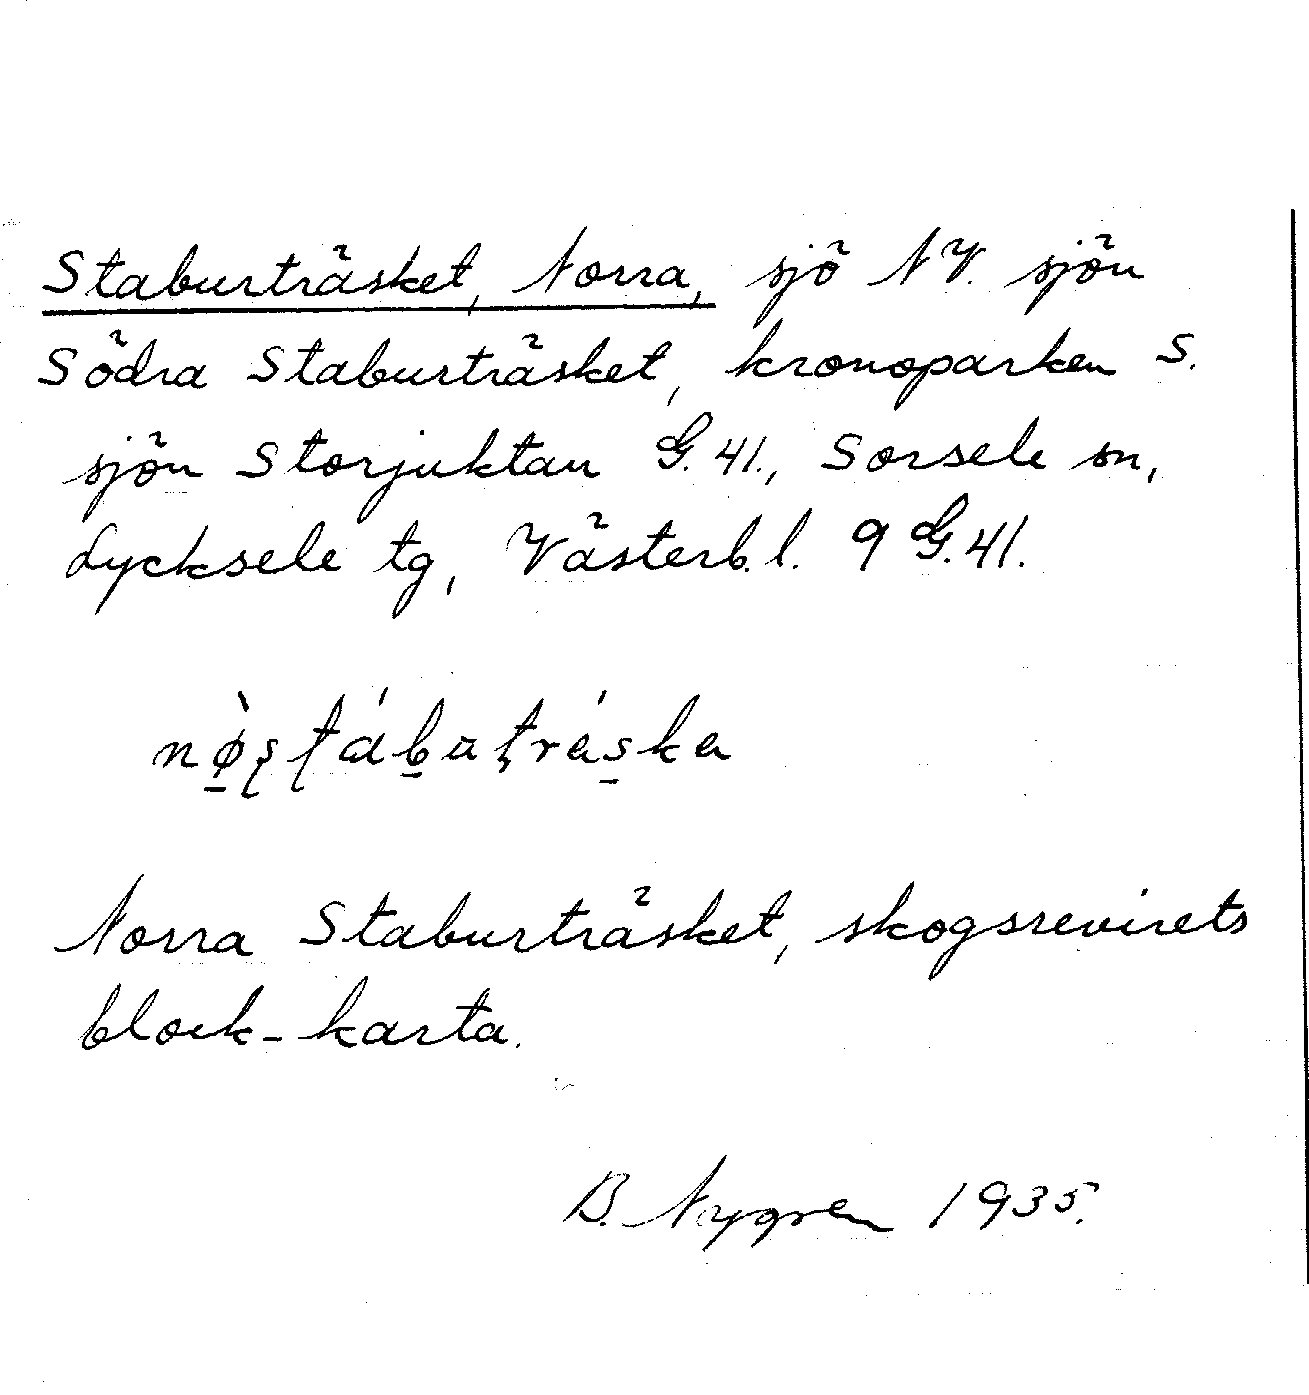 Staburträsket, Norra, sjö NV. sjön
Södra Staburträsket, kronoparken S.
sjön Storjuktan G. 41., Sorsele sn,
Lycksele tg, Västerb. l. 9 G. 41.
Norra Staburträsket, skogsrevirets
block-karta.
B. Nygren 1935.